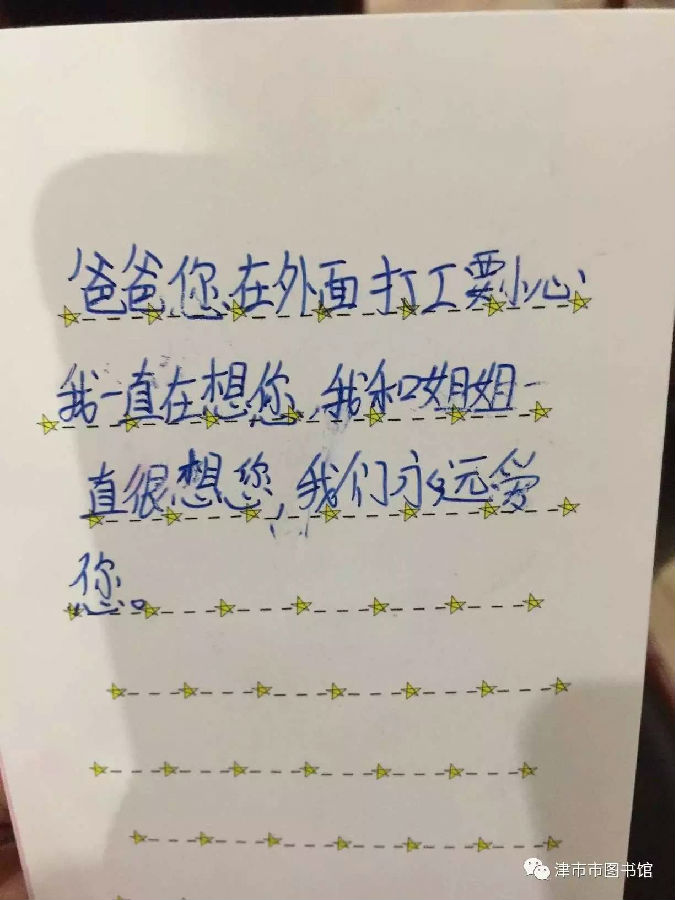 爸爸您在外面打工要小心
我一直在想您，我和姐姐一
直很想您，我们永远爱
您。
津市市图书馆